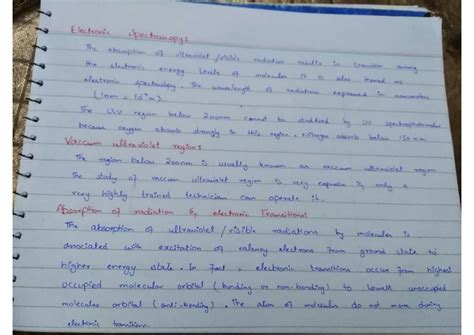 Electronic Spectroscopy:
The absorption of ultraviolet /visible radiation results in transition among
the electronic energy levels of molecules it is also known as
electronic spectroscopy. The wavelength of radiations expressed in nanometers
(1nm = 10⁻⁹m)
The U.V region below 200nm cannot be studied by UV spectrophotometer
because oxygen absorbs strongly in this region. Nitrogen absorbs below 150 nm
Vaccum ultraviolet region:
The region below 200nm is usually known as vaccum ultraviolet region
The study of vaccum ultraviolet region is very expensive & only a
very highly trained technician can operate it.
Absorption of radiation & electronic Transitions
The absorption of ultraviolet /visible radiations by molecules is
associated with excitation of valency electrons from ground state to
higher energy state. In fact, electronic transitions occur from highest
occupied molecular orbital (bonding or non-bonding) to lowest unoccupied
molecular orbital (anti-bonding). The atom of molecules do not move during
electronic transitions.